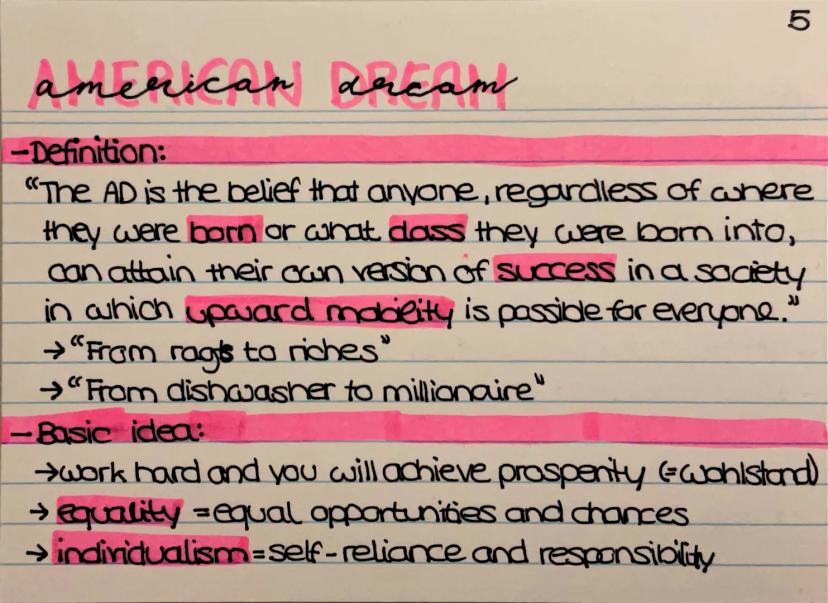 5
AMERICAN DREAM
american dream
-Definition:
"The AD is the belief that anyone, regardless of where
they were born or what class they were born into,
can attain their own version of success in a society
in which upward mobility is possible for everyone."
→ "From rags to riches"
→ "From dishwasher to millionaire"
- Basic idea:
→ work hard and you will achieve prosperity (=wohlstand)
→ equality = equal opportunities and chances
→ individualism = self-reliance and responsibility